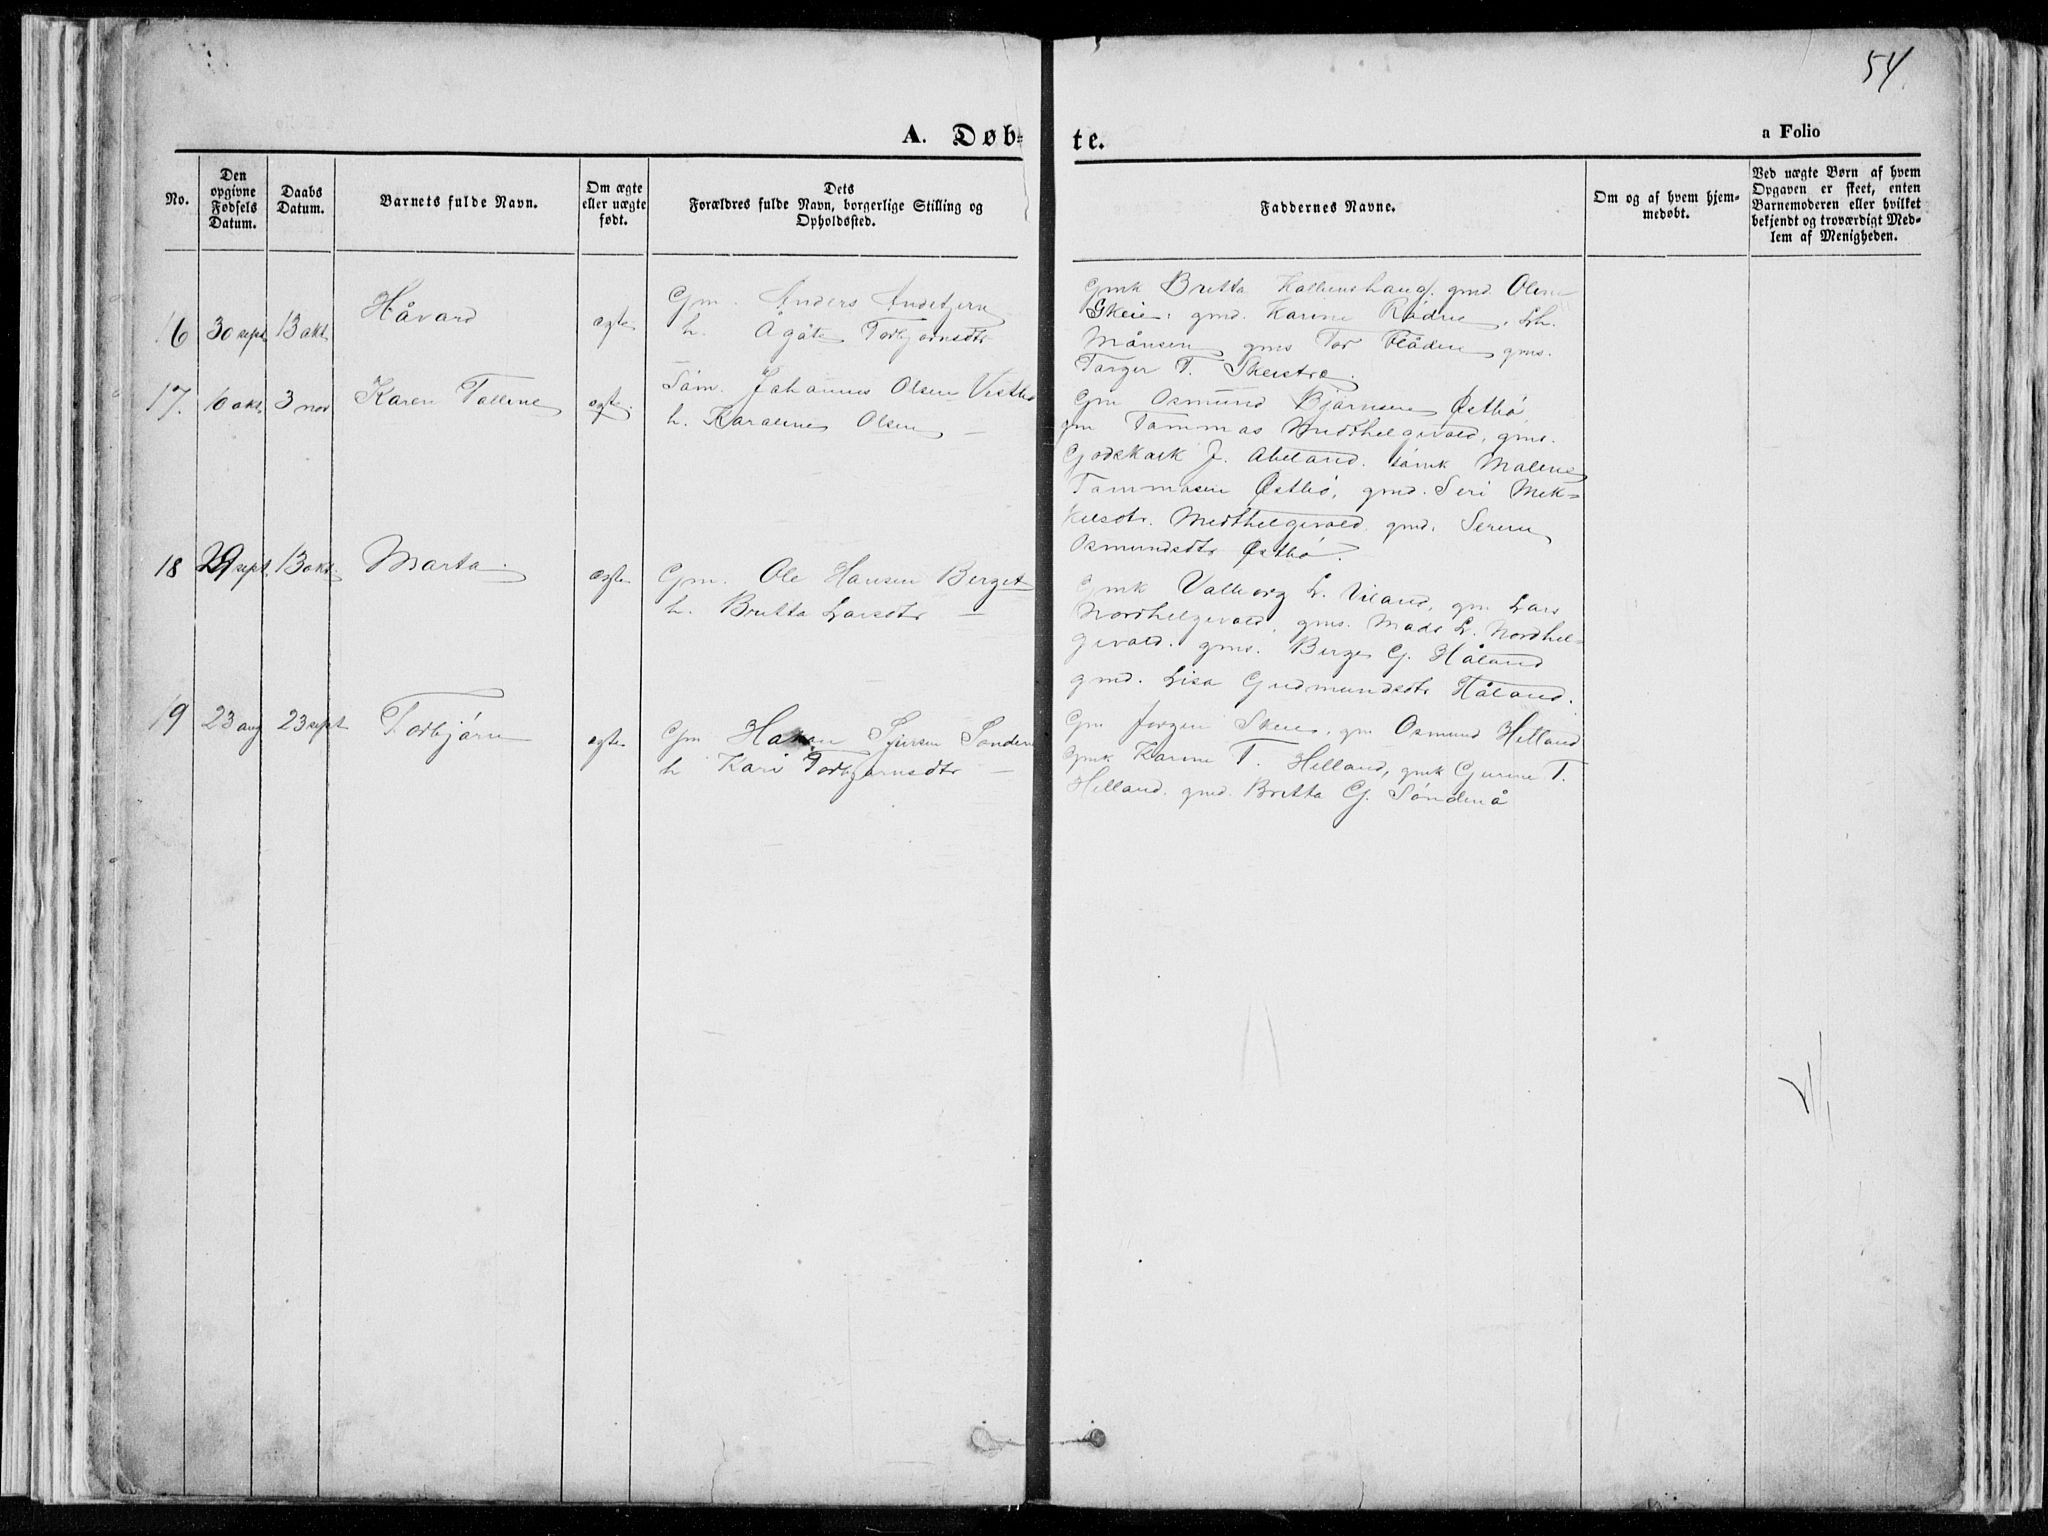 54.
A. Døb-
te.
a Folio
No.
Den opgivne Fødsels Datum.
Daabs Datum.
Barnets fulde Navn.
Om ægte eller uægte født.
Dets
Forældres fulde Navn, borgerlige Stilling og
Opholdssted.
Faddernes Navne.
Om og af hvem hjem-
medøbt.
Ved uægte Børn af hvem
Opgaven er skeet, enten
Barnemoderen eller hvilket
bekjendt og troværdigt Med-
lem af Menigheden.
16 30 sept 13 okt Håvard ægte Gm. Anders
h. Ågåta Torbjørnsdtr
Gmk Britta gmd. Oline
Skeie. gmd. Karine
Månsen gms Tor gms.
Torger T.
17. okt. 3 nov Karen Talline ægte Søm. Johannes Olsen
h. Karaline Olsen —
Gm Osmund Bjørnsen Østbø
gm Tommas Midthelgevold, gms.
J. Abeland. sømk Malene
Tommasen Østbø, gmd. Seri Mik-
kelsdtr. Midthelgevold. gmd. Serine
Osmundsdtr Østbø.
18 29 sept. 13 okt. Marta. ægte Gm. Ole Hansen Berget
h. Britta Larsdtr —
Gmk Valborg L. gm Lars
Nordhelgevold, gms. Mads L. Nordhel-
gevold. gms. Børge G. Håland
gmd. Lisa Gudmundsdtr Håland.
19 23 aug 23 sept Torbjørn ægte Gm Håkon Sjursen
h Kari Torbjørnsdtr —
Gm Jørgen Skeie, gm Osmund Helland
gmk Karine T. Helland, gmk Gurine T.
Helland. gmd. Britta G. Søndenå